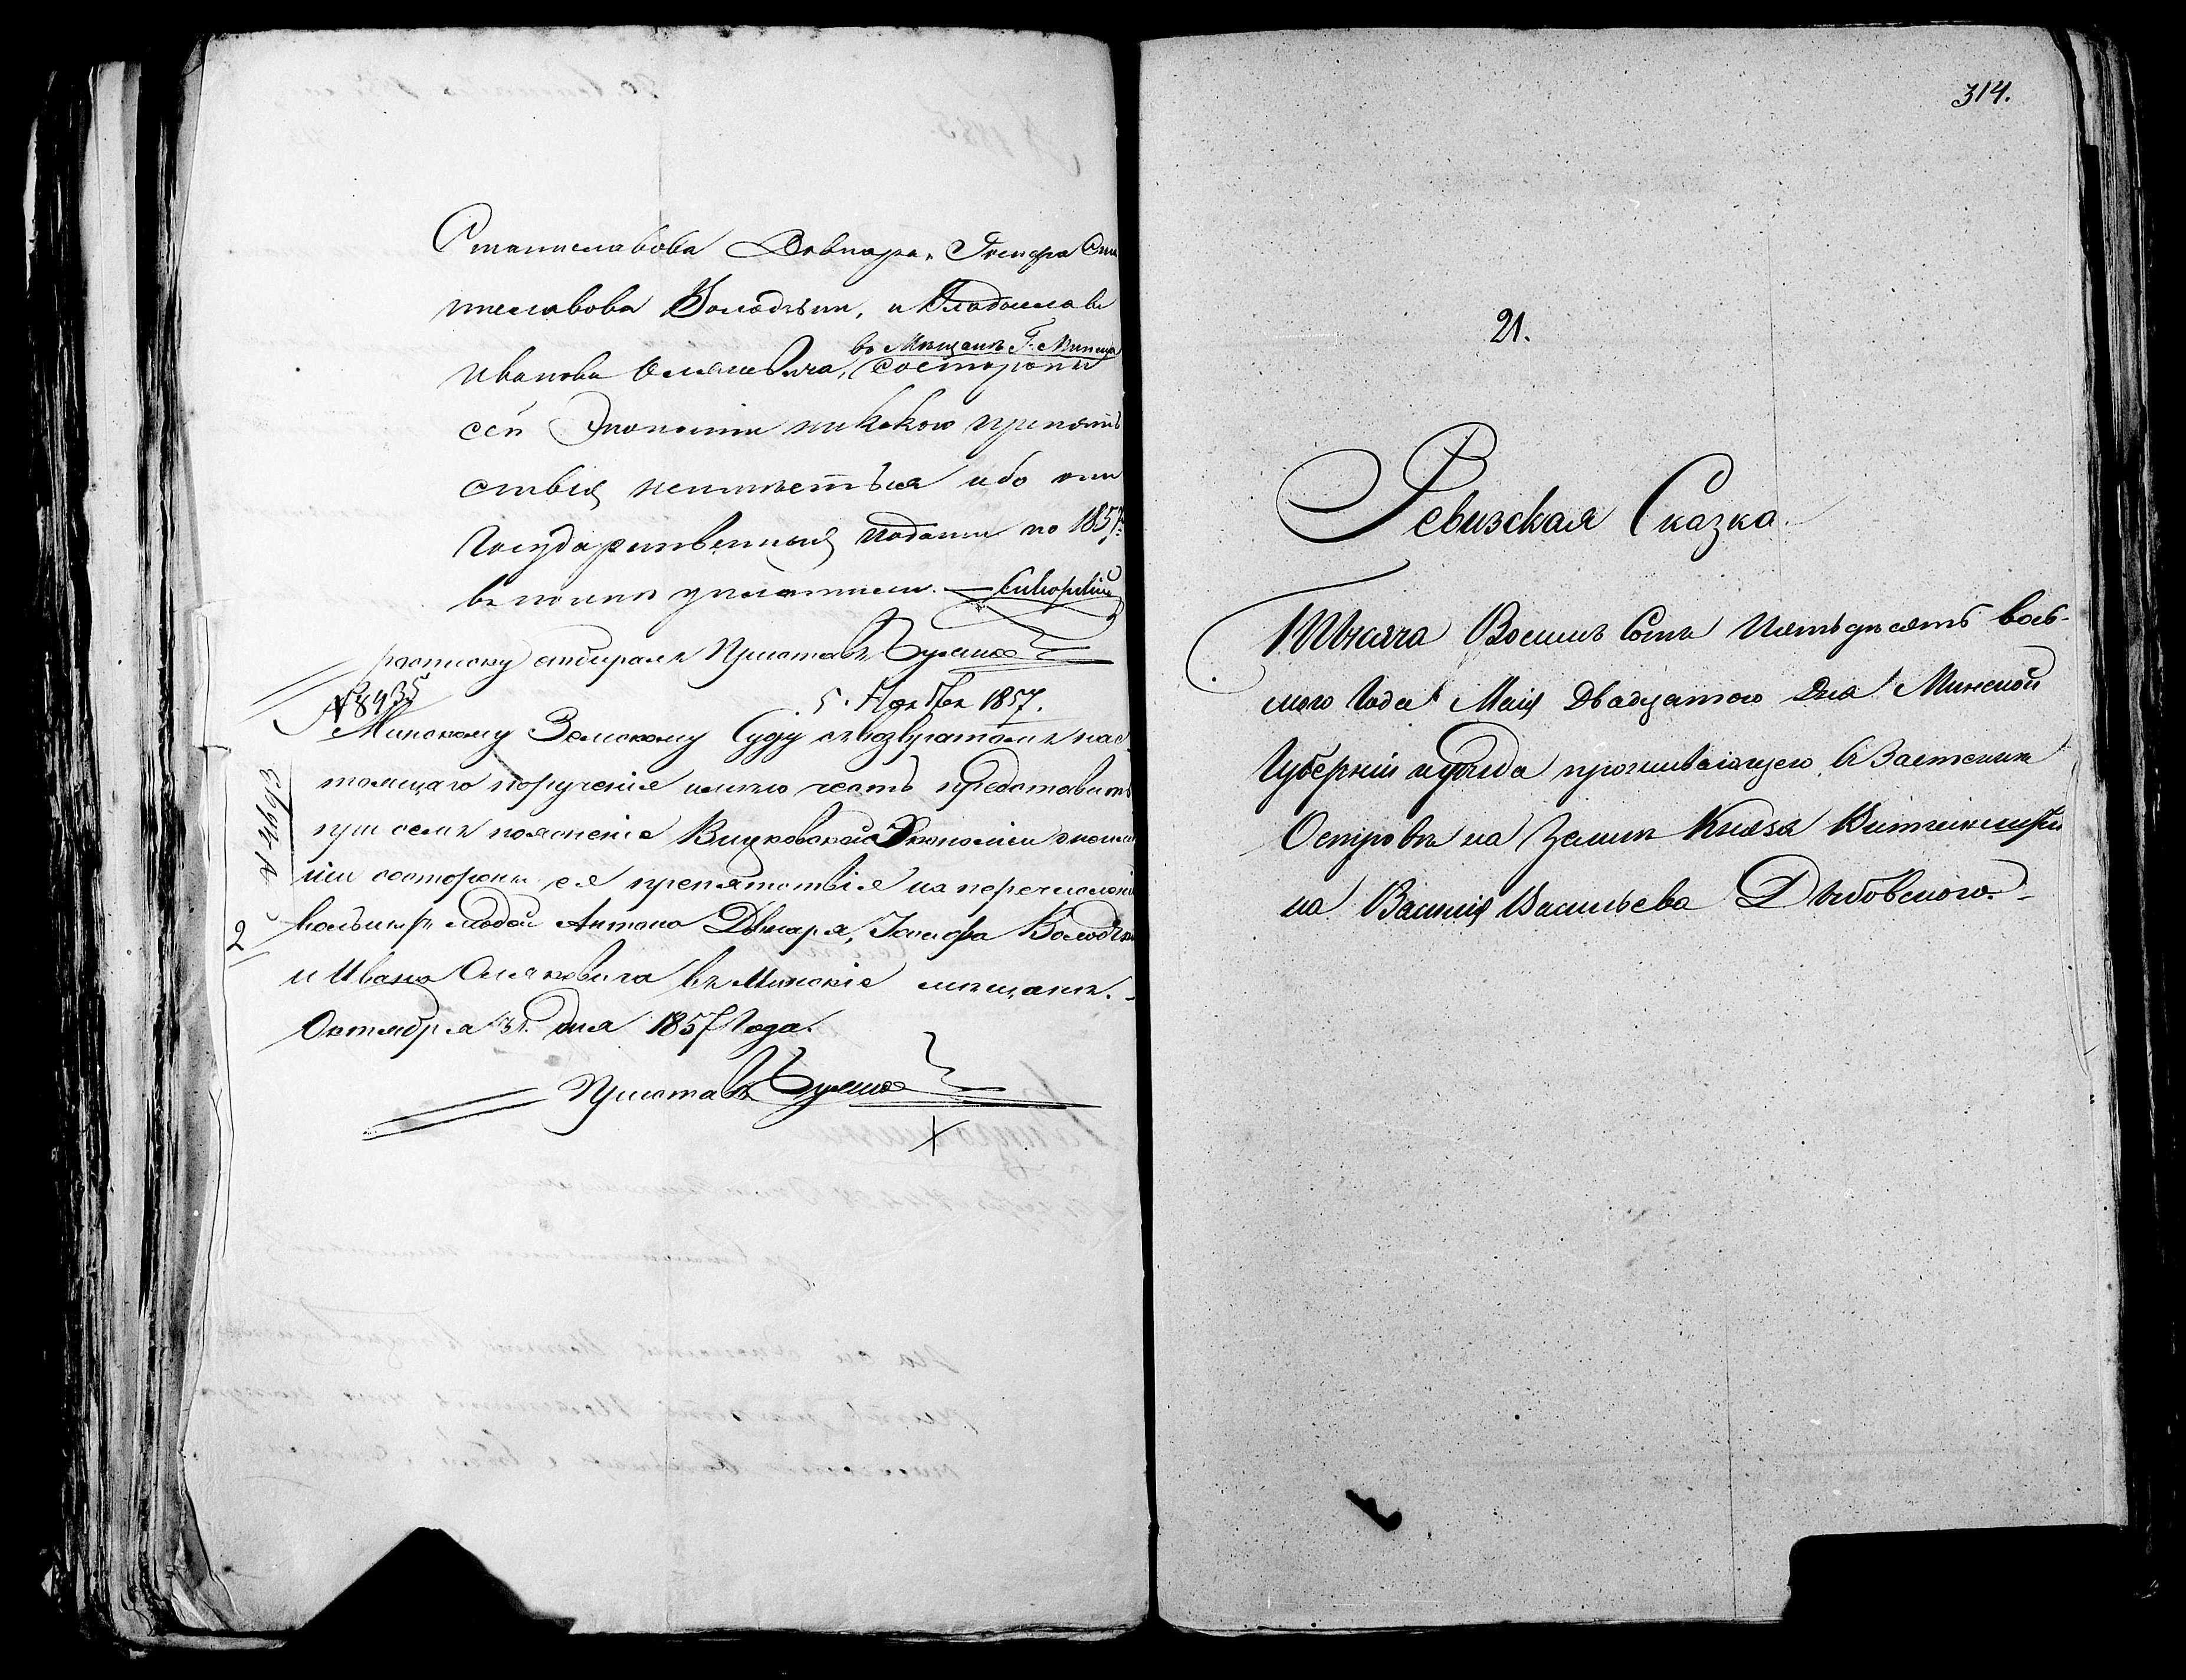 Станиславова Довнара, Іосифа Ста
ниславова Володзьки, и Владислава
въ Мѣщане Г. Минска
Иванова Олехновича, состороны
сей Экономіи никакого препят
ствія неимѣется ибо они
Государственныя подати по 1857 г.
въ полнѣ уплатили.
росписку отбиралъ Приставъ
№ 8435
5 Ноября 1857.
Минскому Земскому Суду съ возвратомъ нас
тоящаго порученія имѣю честь представить
при семъ поясненіе Экономіи о неимѣ
ніи состороны ея препятствія на перечисленіе
вольныхъ людей Антона Довнара, Іосифа Володзки
и Ивана Олехновича въ Минскіе мѣщане.
Октября 31 дня 1857 Года.
Приставъ
№ 4993
2
314.
21.
Ревизская Сказка.
Тысяча Восемь Сотъ Пятьдесятъ вось-
мого Года Маія Двадцатого Дня Минской
Губерніи и уѣзда проживающего въ Застенкѣ
Островѣ на Землѣ Князя Витгенштей
на Василія Васильева Дыбовского.